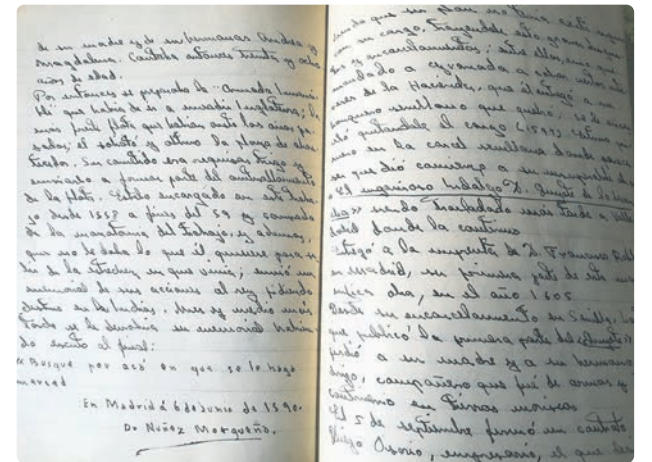 de su madre y de sus hermanas Andrea y
Magdalena. Contaba entonces treinta y ocho
años de edad.
Por entonces se preparaba la "Armada Invenci-
ble" que había de ir a invadir Inglaterra; la
más fuerte flota que habían visto los años pa-
sados; él solicitó y obtuvo la plaza de abas-
tecedor. Su cometido era requisar trigo y
enviarlo a formar parte del
de la flota. Estuvo encargado en este traba-
jo desde 1558 a fines del 59 y cansado
de la monotonía del trabajo, y además,
que no le daba lo que él quisiera para sa-
lir de la estrechez en que vivía; envió un
memorial de sus acciones al rey pidiendo
destino en las Indias. Mes y medio más
tarde se le devolvía su memorial habien-
do escrito al final:
"Busque por acá en que se le haga
merced
En Madrid á 6 de Junio de 1590.
Dr. Nuñez Morqueño.
que su plan no tenía
su cargo, trayendole esto graves
y encarcelamientos; entre ellos, uno que
mandado a a cobrar
de la Hacienda, que él entregó a un
sevillano que quebró, se le
quitandole el cargo (1597)
en la carcel sevillana donde
se que dió comienzo a su
"El ingenioso hidalgo D. Quijote de la Man
cha» siendo trasladado más tarde a Valla
dolid donde la continúa
a la imprenta de D. Francisco Robl
en Madrid, su primera parte de esta
obra, en el año 1605
Desde su encarcelamiento en Sevilla,
que publicó la primera parte del «Quijote»
perdió a su madre y a su hermano
drigo, compañero que fué de armas y
en tierras moriscas
El 5 de septiembre firmó un contrato
Osorio, empresario, el que